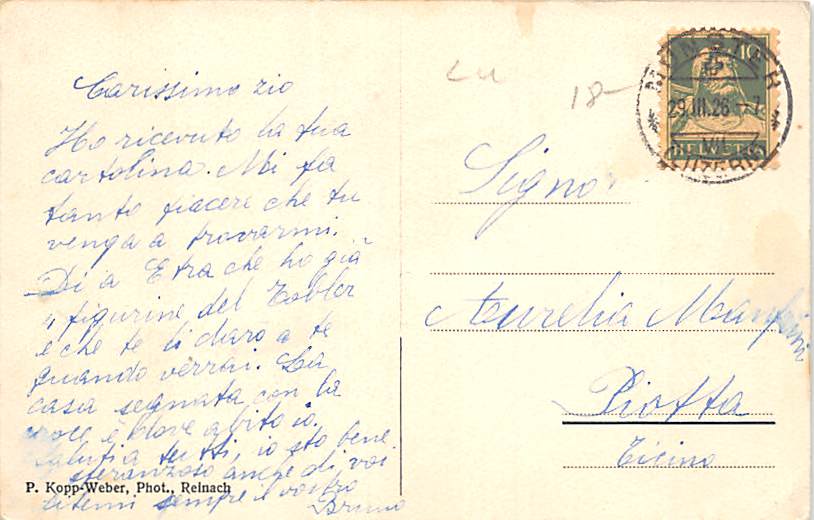 Carissimo zio
Ho ricevuto la tua
cartolina. Mi fa
tanto piacere che tu
venga a trovarmi.
Di a Etra che ho già
figurine del Tobler
e che te li daro a te
quando verrai. La
casa segnata con la
è dove abito io.
Saluti a tutti, io sto bene
speranzoso anche di voi
sempre il vostro
Bruno
P. Kopp-Weber, Phot., Reinach
18-
10
HELVETIA
MÜNSTER
29.III.26
(LUZERN)
Signor
Aurelia Manfrini
Piotta
Ticino